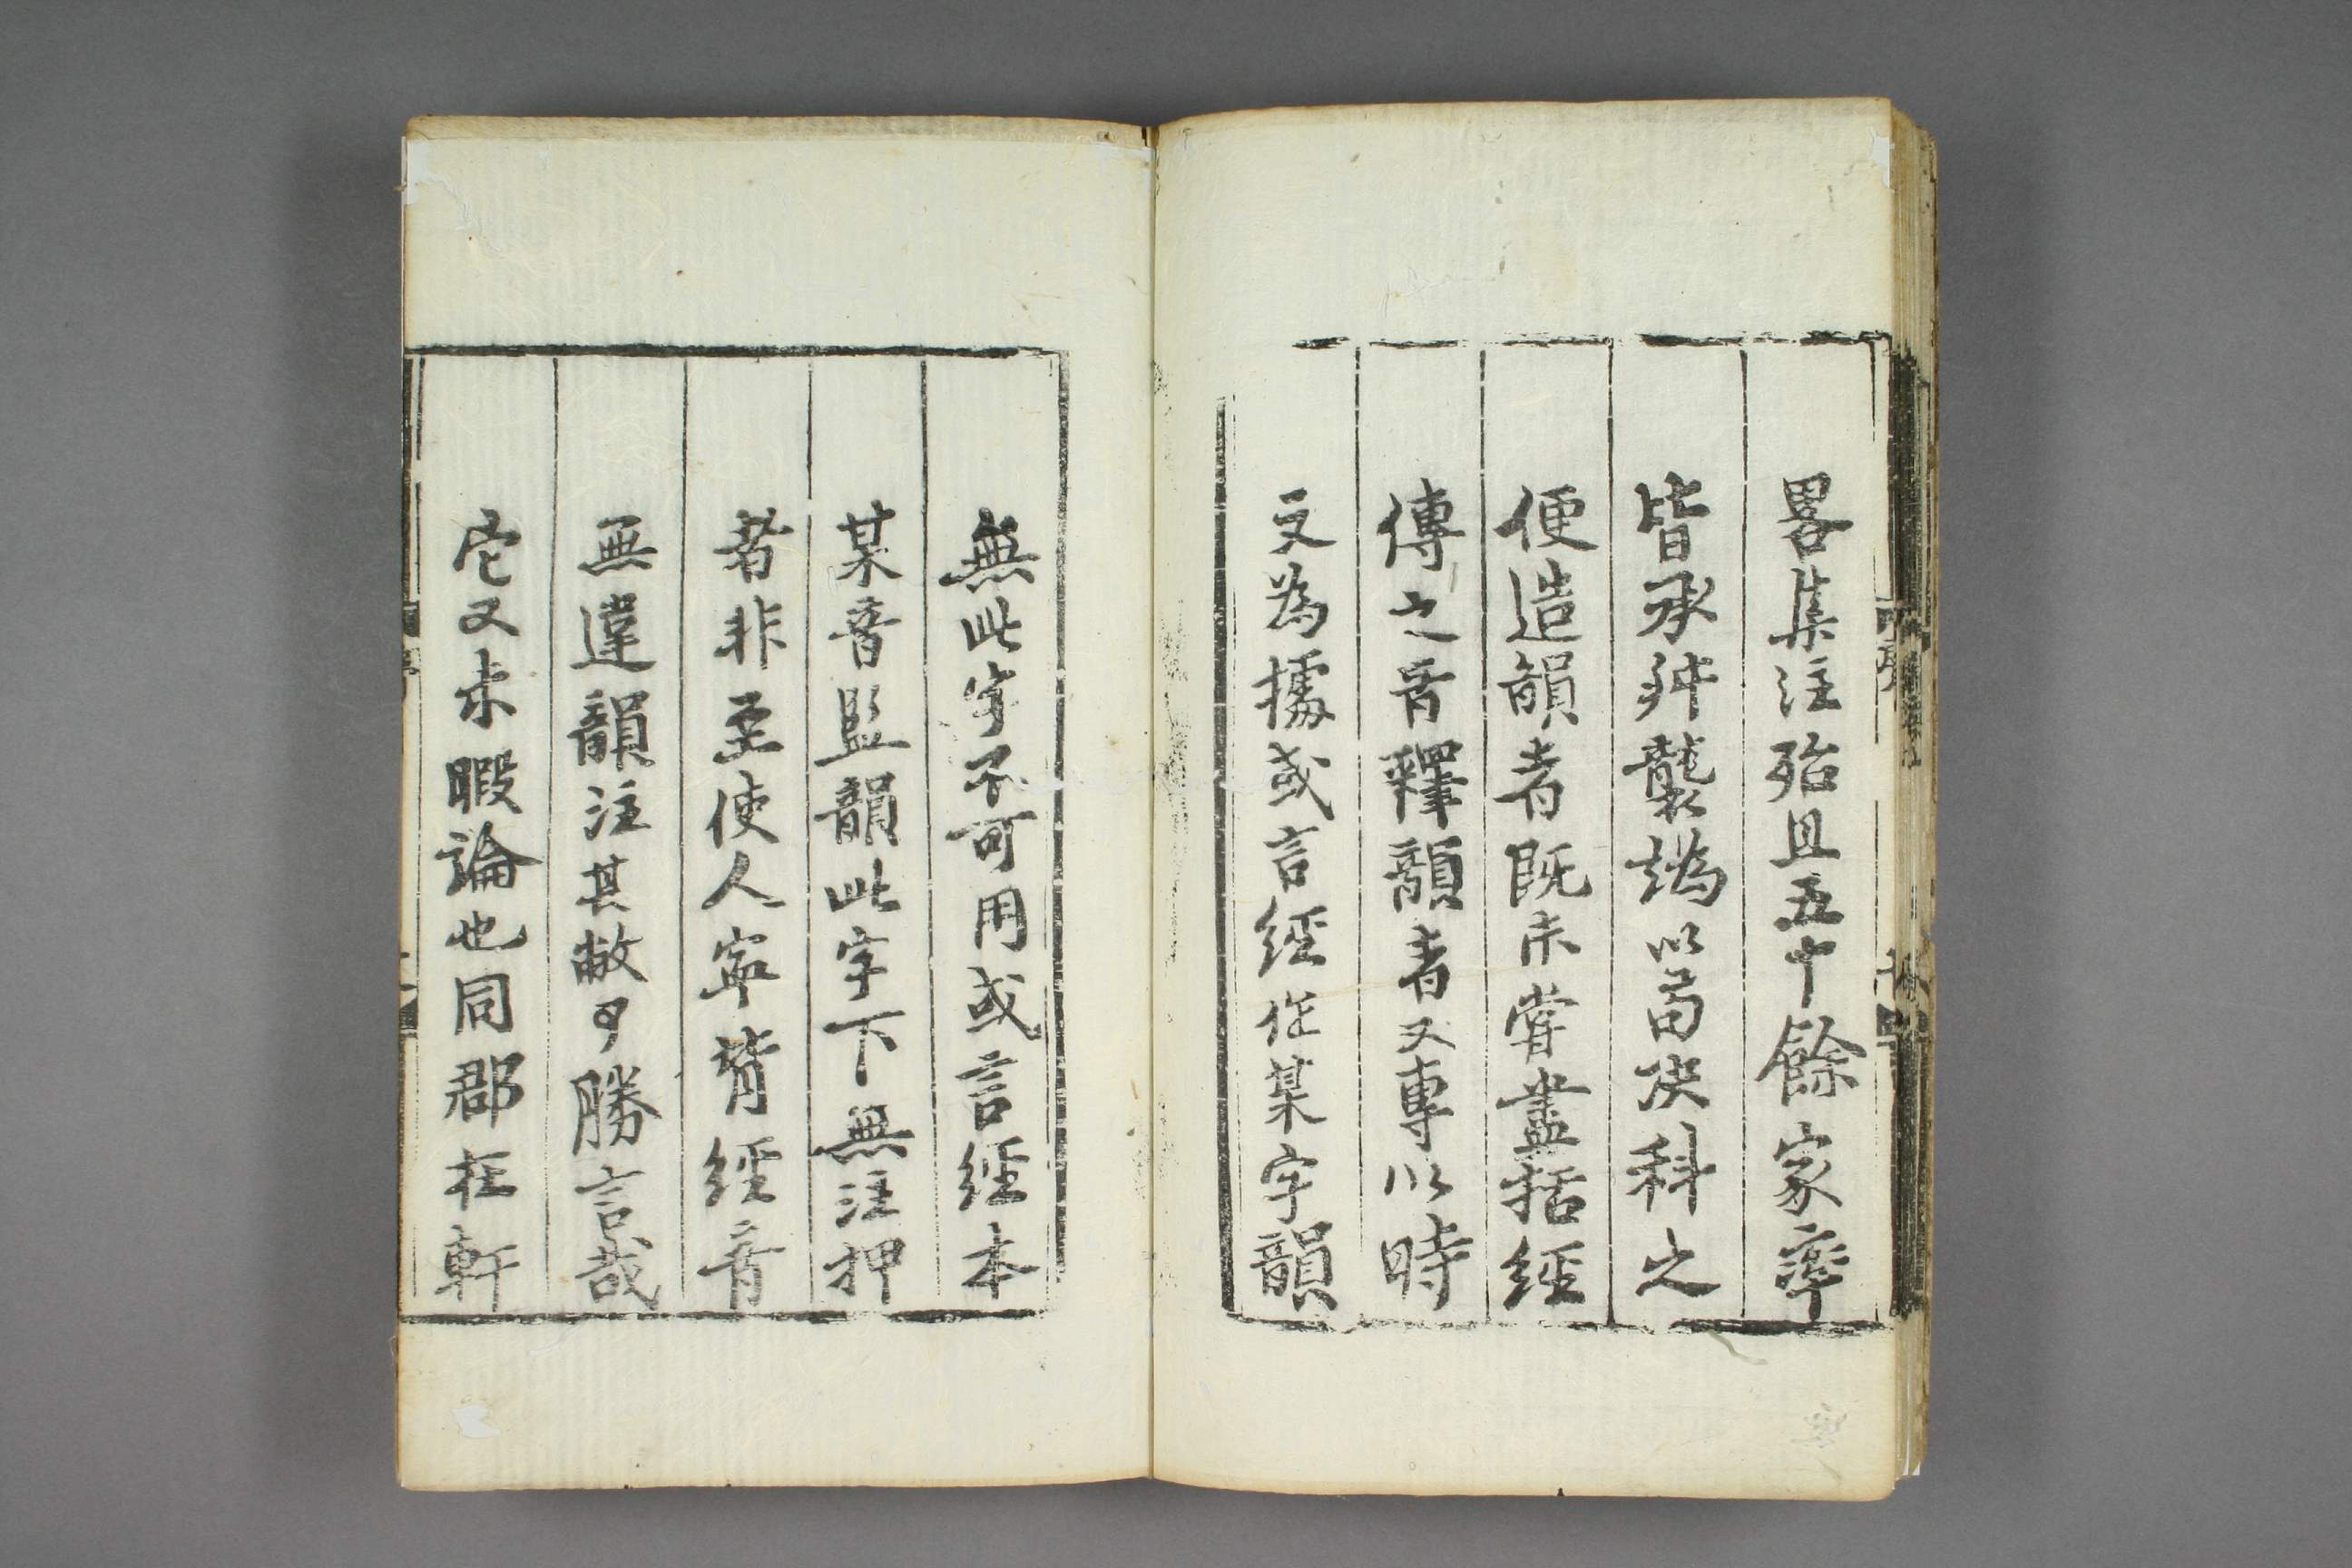 畧集注殆且五十餘家率
皆承舛襲譌以苟决科之
便造韻者既未甞盡括經
傳之音釋韻者又專以時
文為據或言經作某字韻
無此字不可用或言經本
某音監韻此字下無注押
者非至使人寧背經音
無違韻注其敝可勝言哉
它又未暇論也同郡在軒